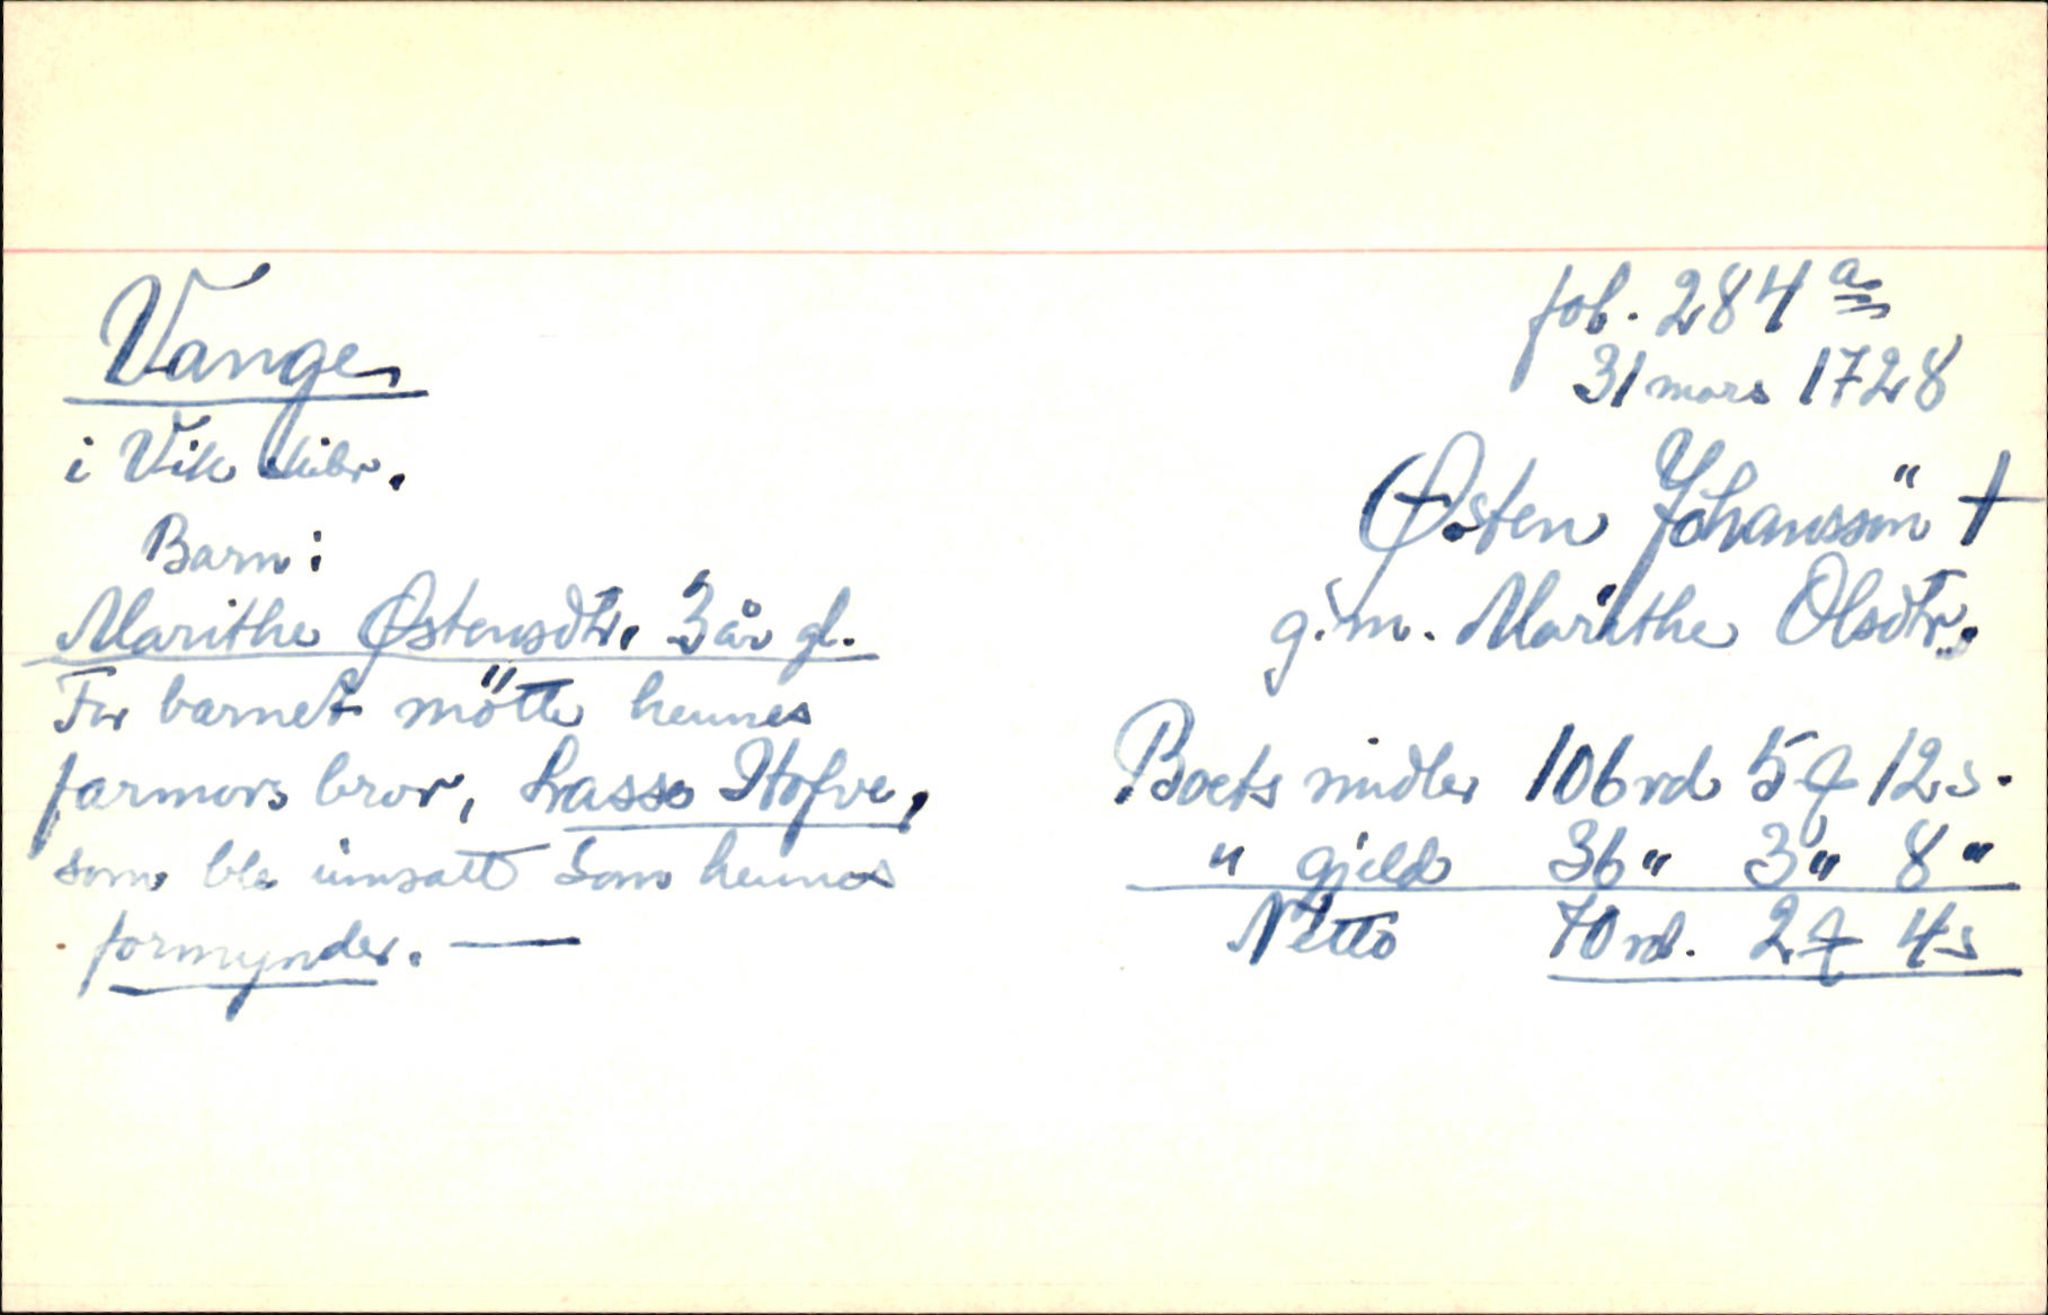 Vange
i Vik skibr.
Barn:
Marithe Østensdtr. 3 år gl.
For barnet mötte hennes
farmors bror, Lasse Hofve,
som ble innsatt som hennes
formynder. —
fol. 284 a
31 mars 1728
Østen Johanssön †
g. m. Marithe Olsdtr.
Boets midler 106 rd 5 f 12 s.
" gjeld 36 " 3 " 8 "
Netto 70 rd. 2 f 4 s